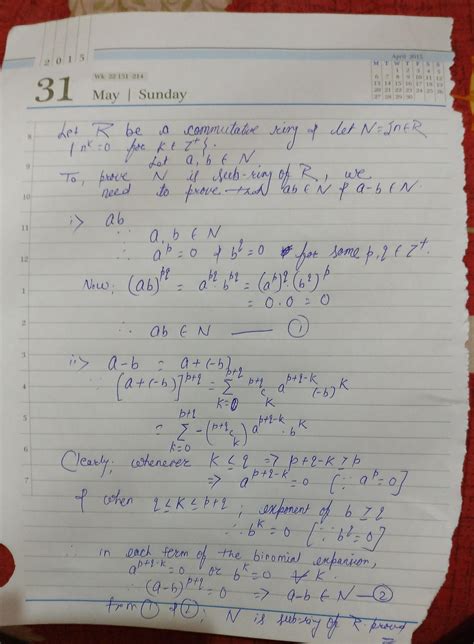 2015
31
Wk 22 151-214
May | Sunday
April 2015
Let R be a commutative ring & let N = {n ∈ R
| n^k = 0 for k ∈ Z^+}.
Let a, b ∈ N
To, prove N is sub-ring of R, we
need to prove → ab ∈ N & a-b ∈ N.
i> ab
∵ a, b ∈ N
∴ a^p = 0 & b^q = 0 for some p, q ∈ Z^+.
Now; (ab)^{pq} = a^{pq} · b^{pq} = (a^p)^q (b^q)^p
= 0 · 0 = 0
∴ ab ∈ N —— ①
ii> a-b = a+(-b)
∵ [a+(-b)]^{p+q} = Σ_{k=0}^{p+q} ^{p+q}C_k a^{p+q-k} (-b)^k
= Σ_{k=0}^{p+q} -(^{p+q}C_k) a^{p+q-k} · b^k
Clearly; whenever k ≤ q => p+q-k ≥ p
=> a^{p+q-k} = 0 [∵ a^p = 0]
& when q ≤ k ≤ p+q; exponent of b ≥ q
∴ b^k = 0 [∵ b^q = 0]
∴ in each term of the binomial expansion,
a^{p+q-k} = 0 or b^k = 0 ∀ k.
∴ (a-b)^{p+q} = 0 => a-b ∈ N —②
from ① & ②; N is sub-ring of R. proved